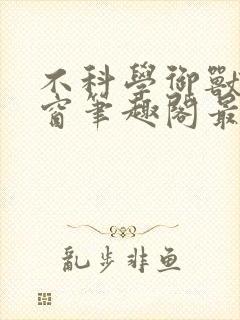 不科學御獸
窗筆趣閣最
亂步非鱼